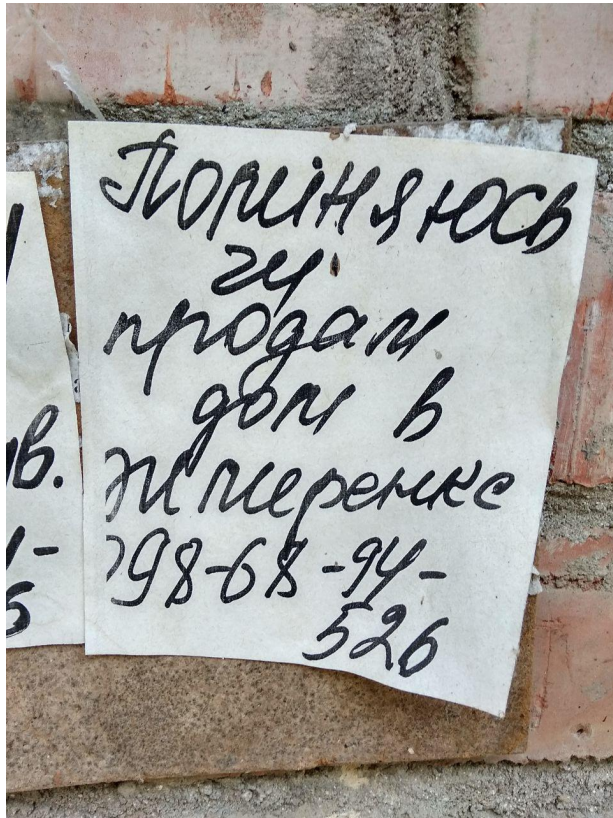 Поміняюсь
чи
продам
дом в
Жмеренке
098-68-94-
526